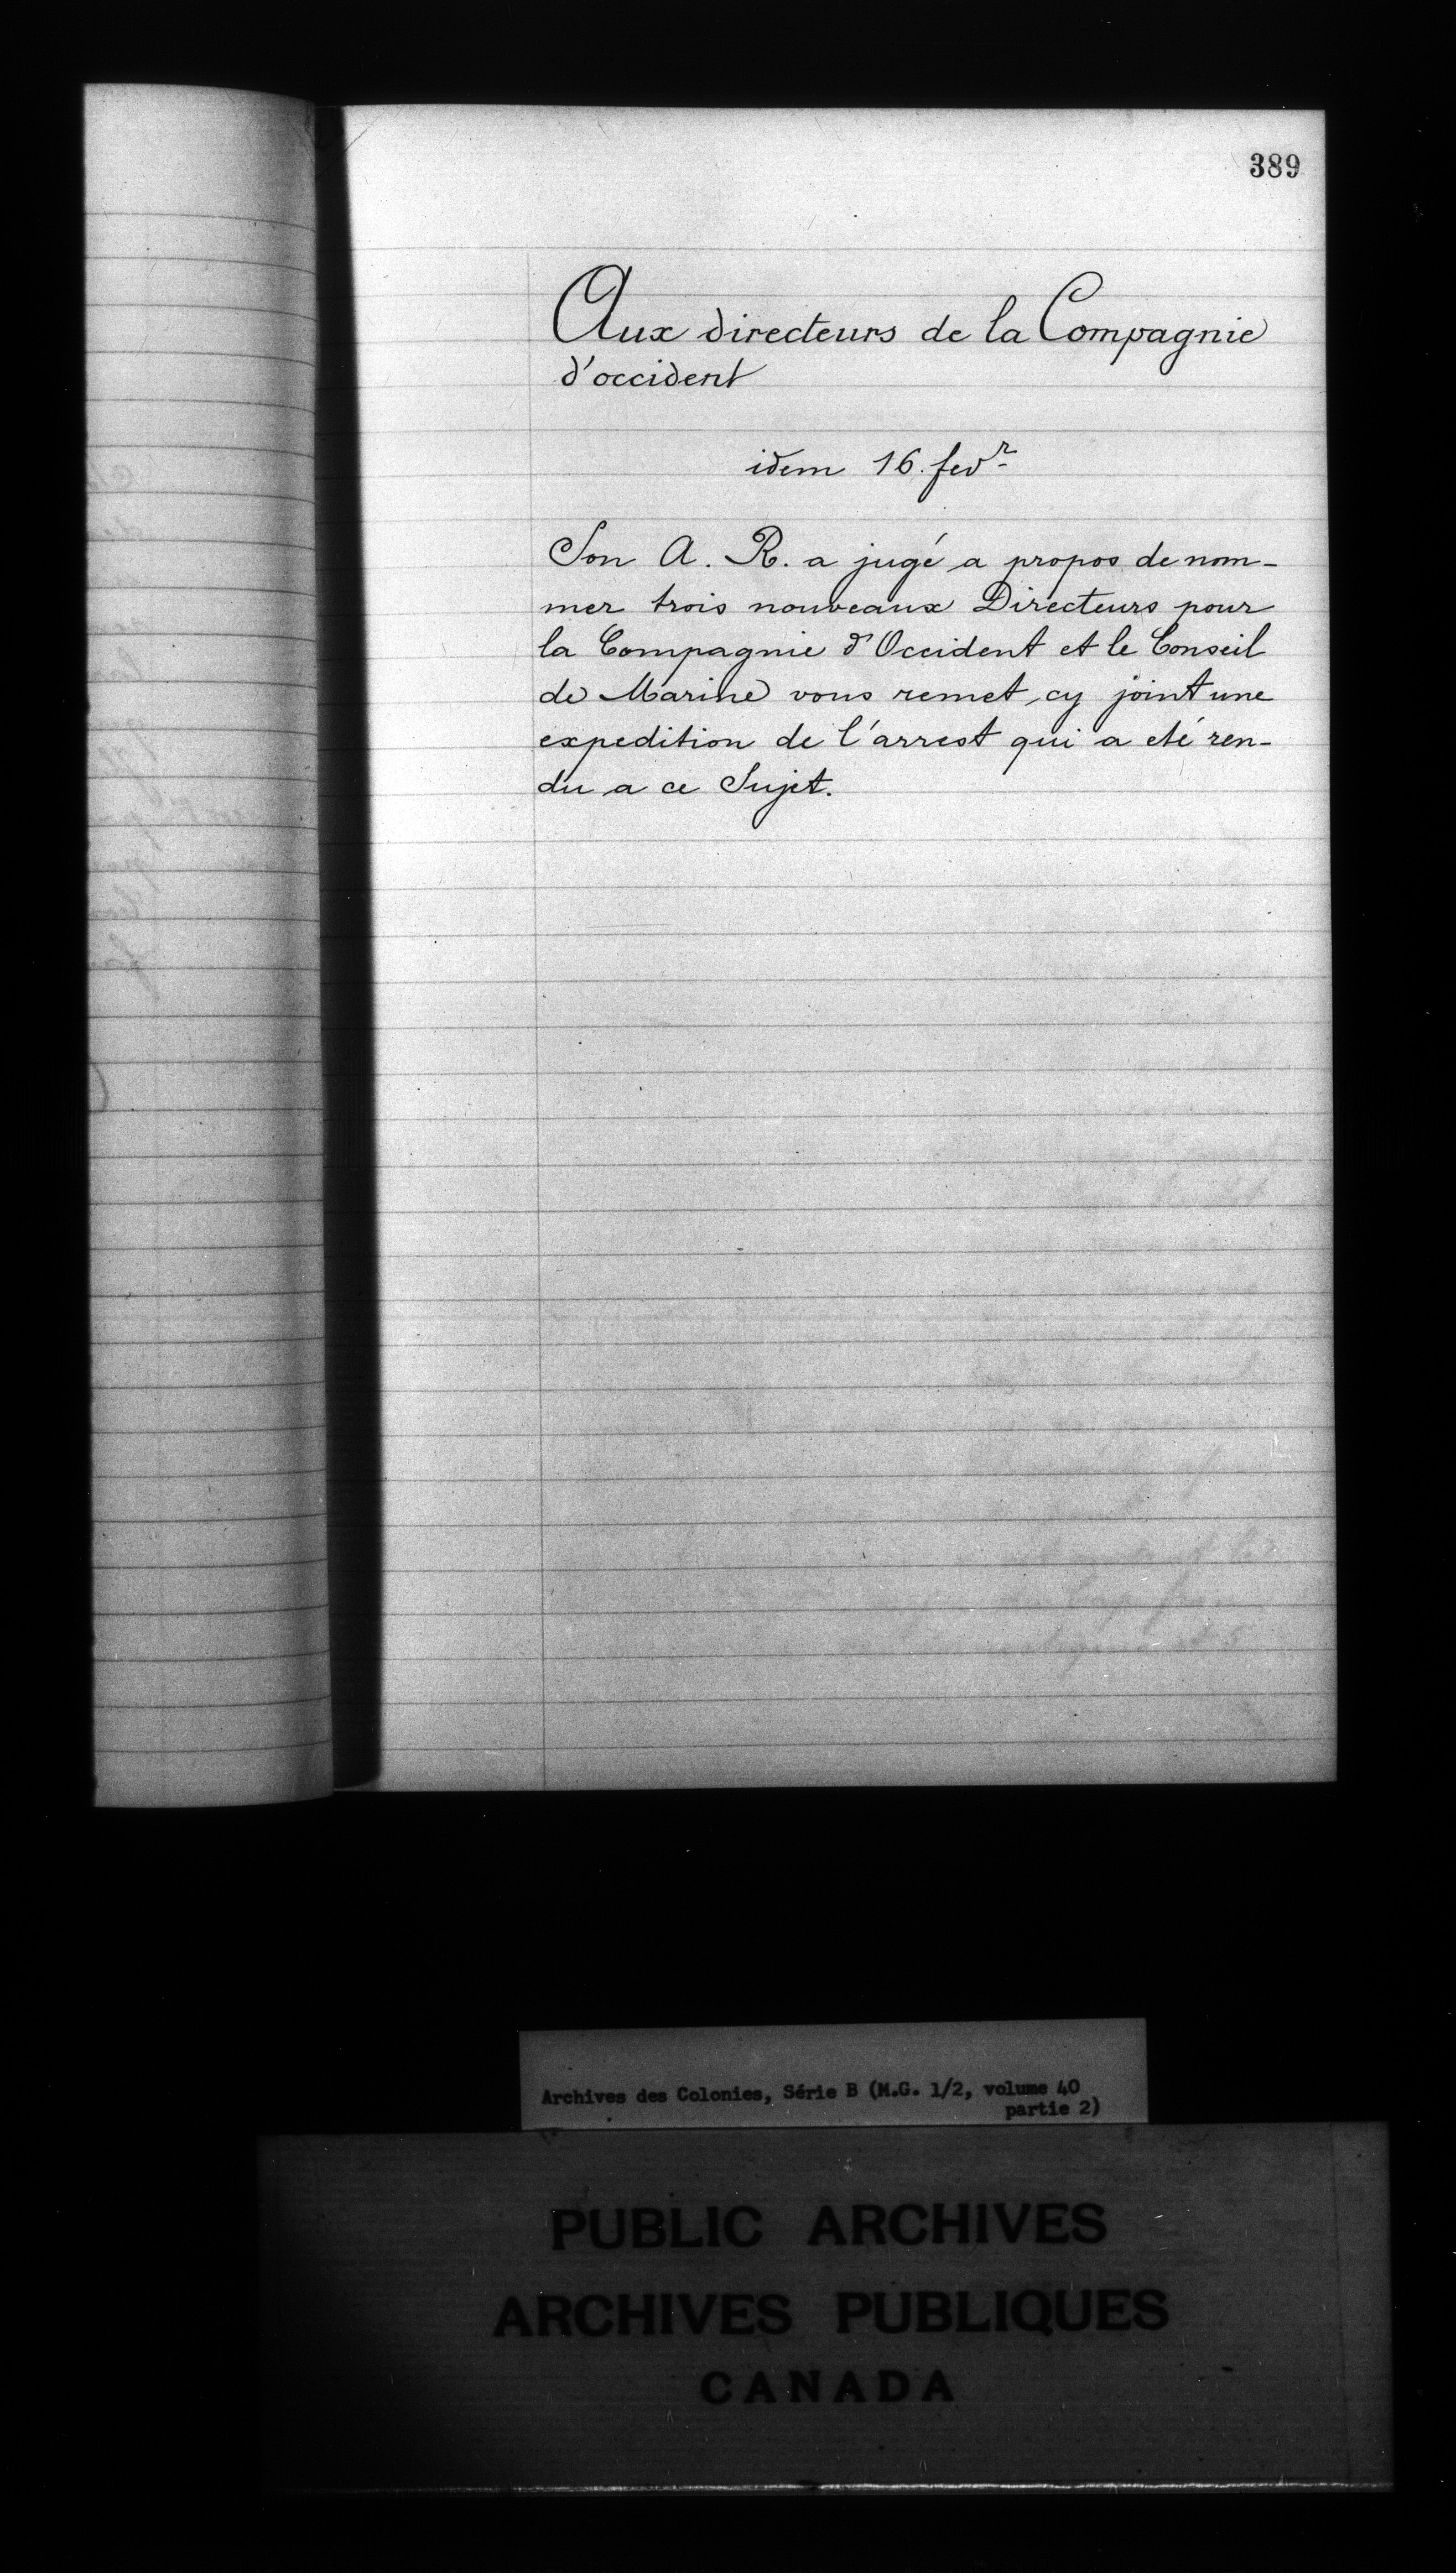 389
Aux directeurs de la Compagnie
d'occident
idem 16. fevr
Son A. R. a jugé a propos de nom-
mer trois nouveaux Directeurs pour
la Compagnie d'Occident et le Conseil
de Marine vous remet cy joint une
expedition de l'arrest qui a eté ren-
du a ce Sujet.
Archives des Colonies, Série B (M.G. 1/2, volume 40
partie 2)
PUBLIC ARCHIVES
ARCHIVES PUBLIQUES
CANADA